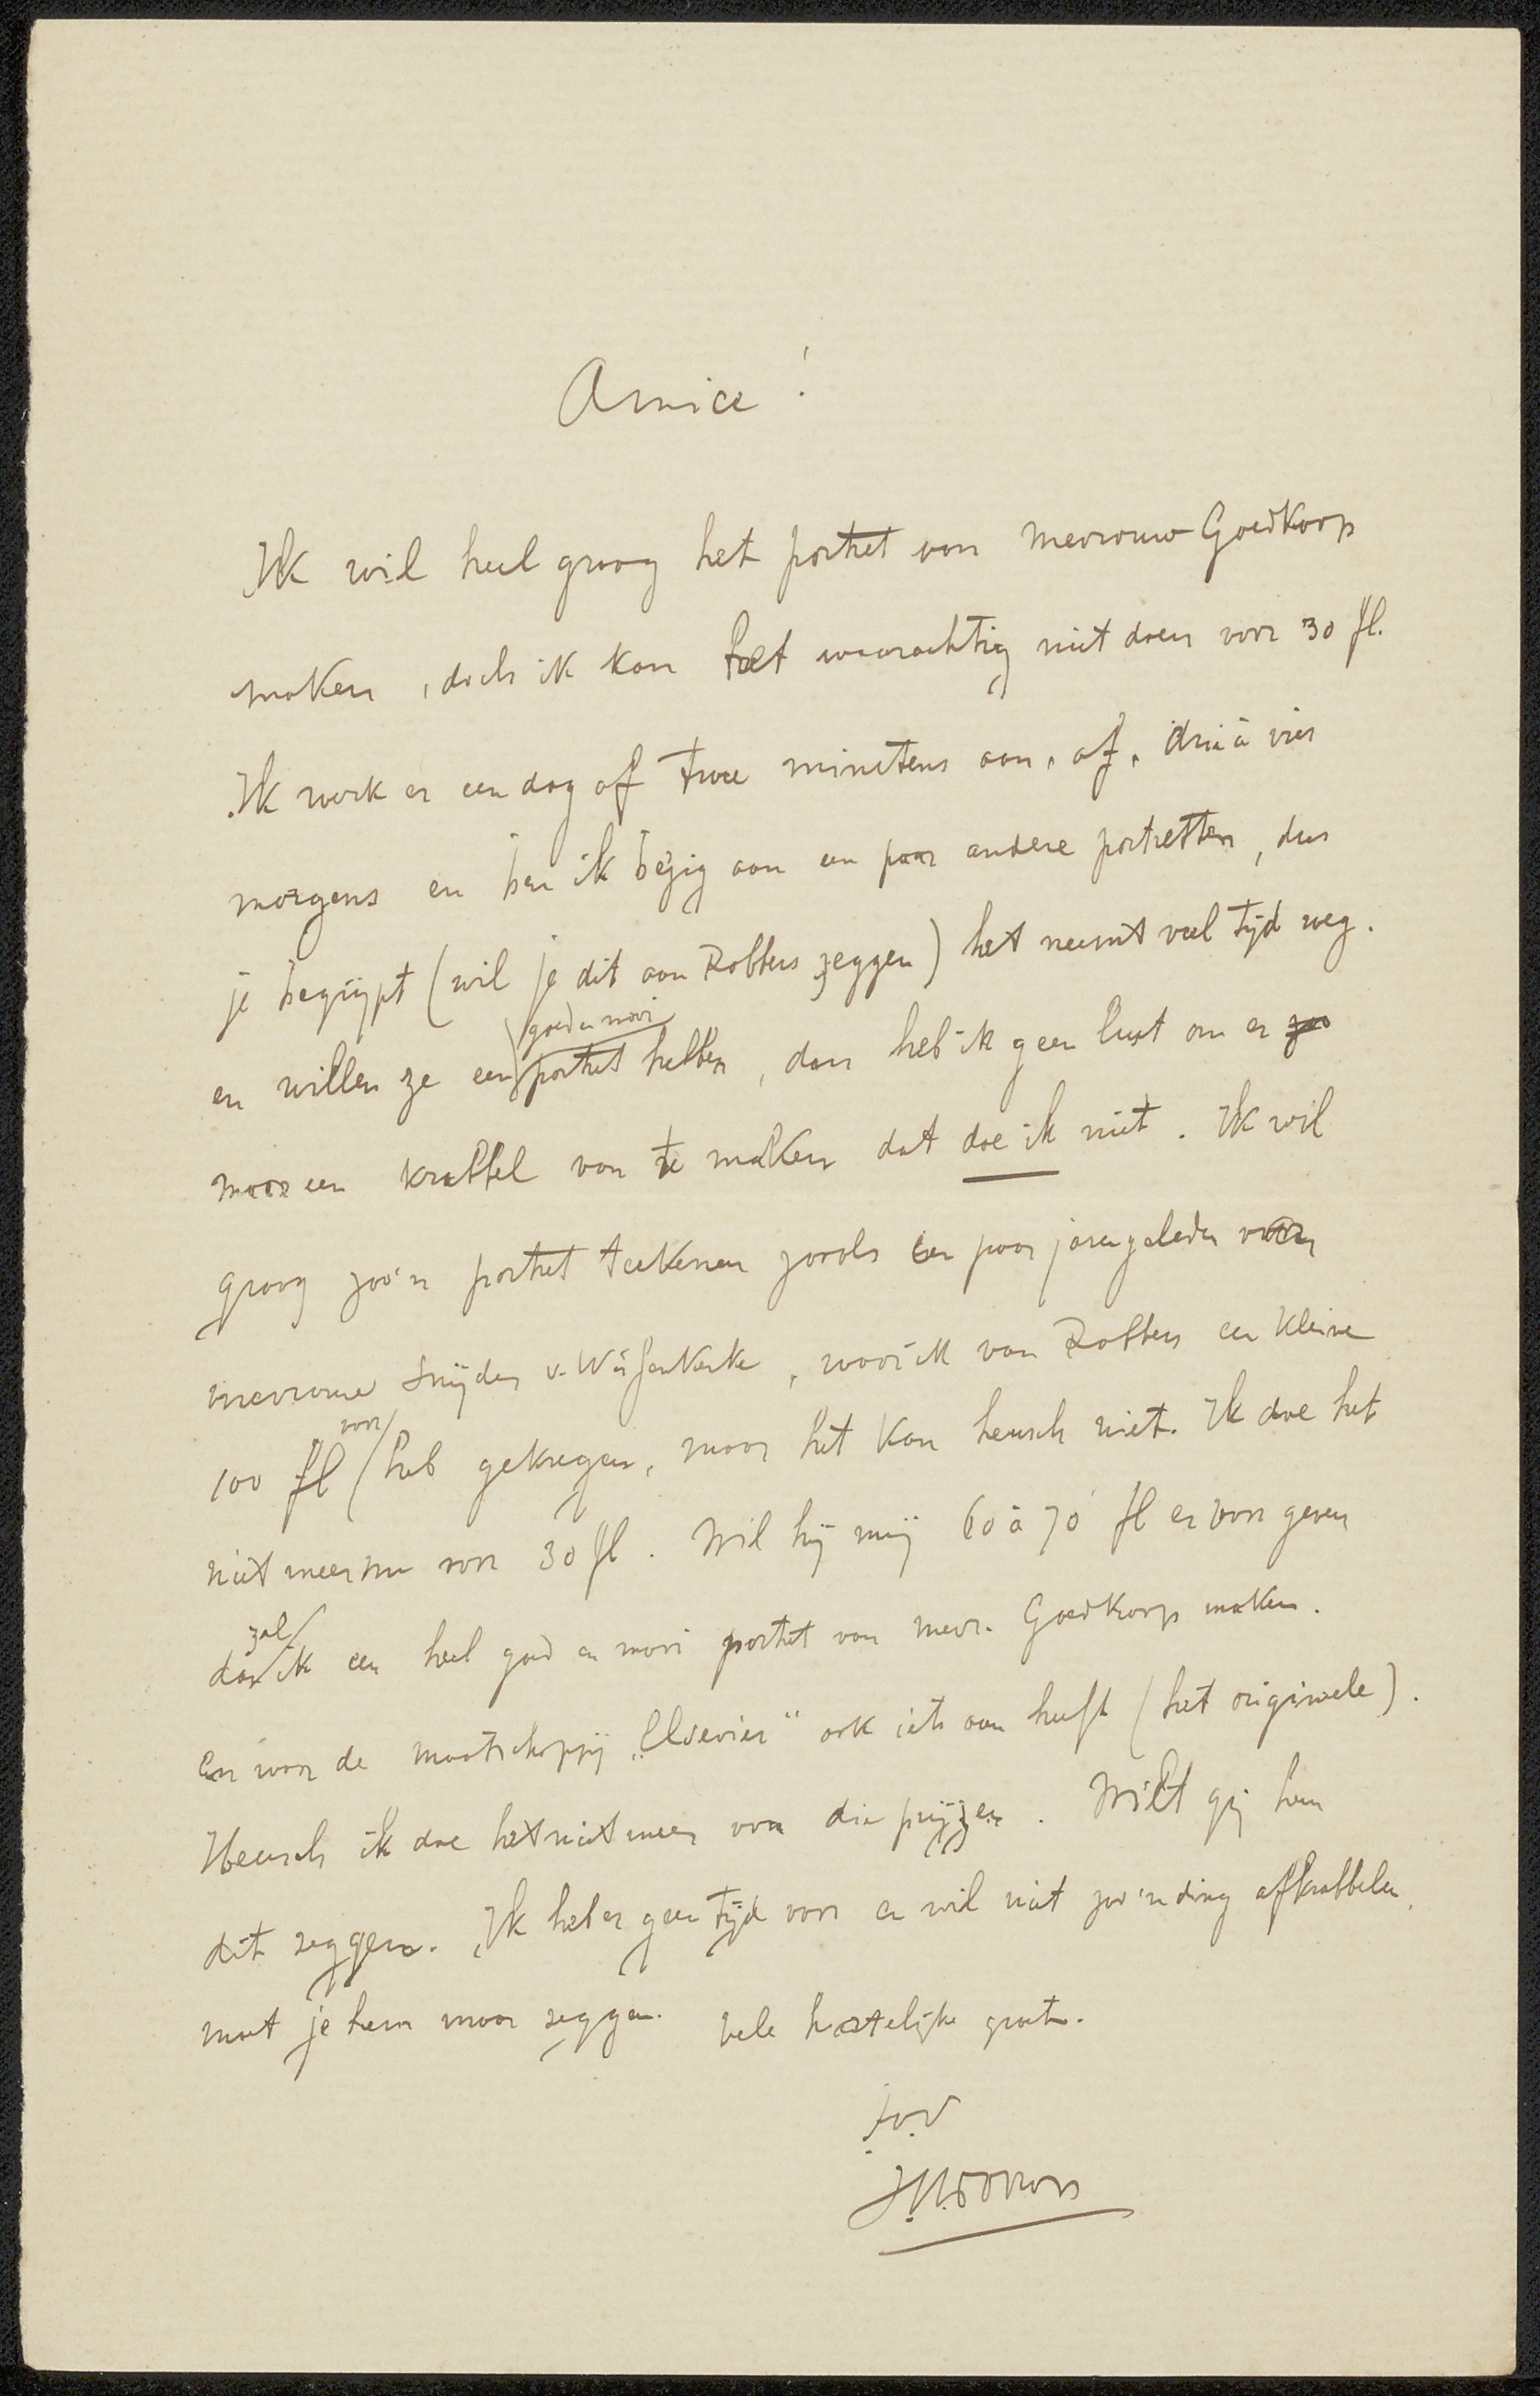 Amice !
Ik wil heel graag het portret van mevrouw Goedkoop
maken, doch ik kan het waarachtig niet doen voor 30 fl.
Ik werk er een dag of twee minstens aan, of, drie à vier
morgens en ben ik bezig aan een paar andere portretten, dus
je begrijpt (wil je dit aan Robbers zeggen) het neemt veel tijd weg.
goed en mooi
en willen ze een portret hebben, dan heb ik geen lust om er zoo
maar een krabbel van te maken dat doe ik niet. Ik wil
graag zoo'n portret teekenen zooals een paar jaren geleden van
mevrouw Snijder v. Wissenkerke, waar ik van Robbers een kleine
voor
100 fl heb gekregen, maar het kan heusch niet. Ik doe het
niet meer nu voor 30 fl. Wil hij mij 60 à 70 fl er voor geven
zal
dan ik een heel goed en mooi portret van mevr. Goedkoop maken.
En waar de maatschappij „Elsevier" ook iets aan heeft (het origineele).
Heusch ik doe het niet meer voor die prijzen. Wilt gij hem
dit zeggen. Ik heb er geen tijd voor en wil niet zoo'n ding afkrabbelen,
moet je hem maar zeggen. Vele hartelijke groeten.
t.v.